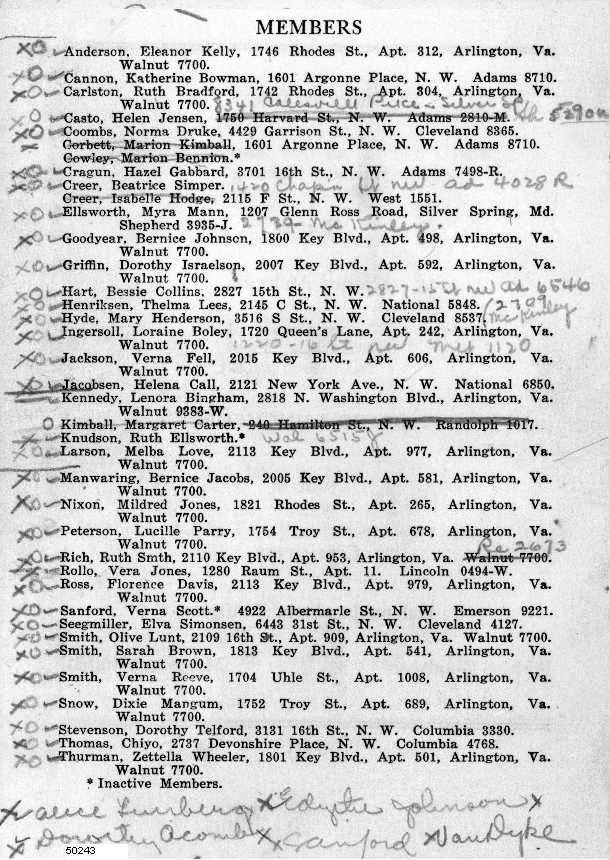 MEMBERS
XO Anderson, Eleanor Kelly, 1746 Rhodes St., Apt. 312, Arlington, Va.
Walnut 7700.
XO Cannon, Katherine Bowman, 1601 Argonne Place, N. W. Adams 8710.
XO Carlston, Ruth Bradford, 1742 Rhodes St., Apt. 304, Arlington, Va.
Walnut 7700. 8341 Price - Silver Sp
XO Casto, Helen Jensen, 1750 Harvard St., N. W. Adams 2810-M. Sh 5290
XO Coombs, Norma Druke, 4429 Garrison St., N. W. Cleveland 8365.
Corbett, Marion Kimball, 1601 Argonne Place, N. W. Adams 8710.
Cowley, Marion Bennion.*
XO Cragun, Hazel Gabbard, 3701 16th St., N. W. Adams 7498-R.
XO Creer, Beatrice Simper. 1420 Chapin St nw ad 4028 R
Creer, Isabelle Hodge, 2115 F St., N. W. West 1551.
XO Ellsworth, Myra Mann, 1207 Glenn Ross Road, Silver Spring, Md.
Shepherd 3935-J. 2739- McKinley.
XO Goodyear, Bernice Johnson, 1800 Key Blvd., Apt. 498, Arlington, Va.
Walnut 7700.
XO Griffin, Dorothy Israelson, 2007 Key Blvd., Apt. 592, Arlington, Va.
Walnut 7700.
XO Hart, Bessie Collins, 2827 15th St., N. W. 2827-15th nw ad 6546
XO Henriksen, Thelma Lees, 2145 C St., N. W. National 5848. 2709
XO Hyde, Mary Henderson, 3516 S St., N. W. Cleveland 8537. McKinley
XO Ingersoll, Loraine Boley, 1720 Queen's Lane, Apt. 242, Arlington, Va.
Walnut 7700. 1220-16 St nw Met 1120
XO Jackson, Verna Fell, 2015 Key Blvd., Apt. 606, Arlington, Va.
Walnut 7700.
XO Jacobsen, Helena Call, 2121 New York Ave., N. W. National 6850.
Kennedy, Lenora Bingham, 2818 N. Washington Blvd., Arlington, Va.
Walnut 9383-W.
O Kimball, Margaret Carter, 240 Hamilton St., N. W. Randolph 1017.
XO Knudson, Ruth Ellsworth.* Wal 6515J
XO Larson, Melba Love, 2113 Key Blvd., Apt. 977, Arlington, Va.
Walnut 7700.
XO Manwaring, Bernice Jacobs, 2005 Key Blvd., Apt. 581, Arlington, Va.
Walnut 7700.
XO Nixon, Mildred Jones, 1821 Rhodes St., Apt. 265, Arlington, Va.
Walnut 7700.
XO Peterson, Lucille Parry, 1754 Troy St., Apt. 678, Arlington, Va.
Walnut 7700. Re 2673
XO Rich, Ruth Smth, 2110 Key Blvd., Apt. 953, Arlington, Va. Walnut 7700.
XO Rollo, Vera Jones, 1280 Raum St., Apt. 11. Lincoln 0494-W.
XO Ross, Florence Davis, 2113 Key Blvd., Apt. 979, Arlington, Va.
Walnut 7700.
XO Sanford, Verna Scott.* 4922 Albermarle St., N. W. Emerson 9221.
XO Seegmiller, Elva Simonsen, 6443 31st St., N. W. Cleveland 4127.
XO Smith, Olive Lunt, 2109 16th St., Apt. 909, Arlington, Va. Walnut 7700.
XO Smith, Sarah Brown, 1813 Key Blvd., Apt. 541, Arlington, Va.
Walnut 7700.
XO Smith, Verna Reeve, 1704 Uhle St., Apt. 1008, Arlington, Va.
Walnut 7700.
XO Snow, Dixie Mangum, 1752 Troy St., Apt. 689, Arlington, Va.
Walnut 7700.
XO Stevenson, Dorothy Telford, 3131 16th St., N. W. Columbia 3330.
XO Thomas, Chiyo, 2737 Devonshire Place, N. W. Columbia 4768.
XO Thurman, Zettella Wheeler, 1801 Key Blvd., Apt. 501, Arlington, Va.
Walnut 7700.
* Inactive Members.
X Alice X Edythe Johnson X
X Dorothy Acomb X Sanford X VanDyke
50243